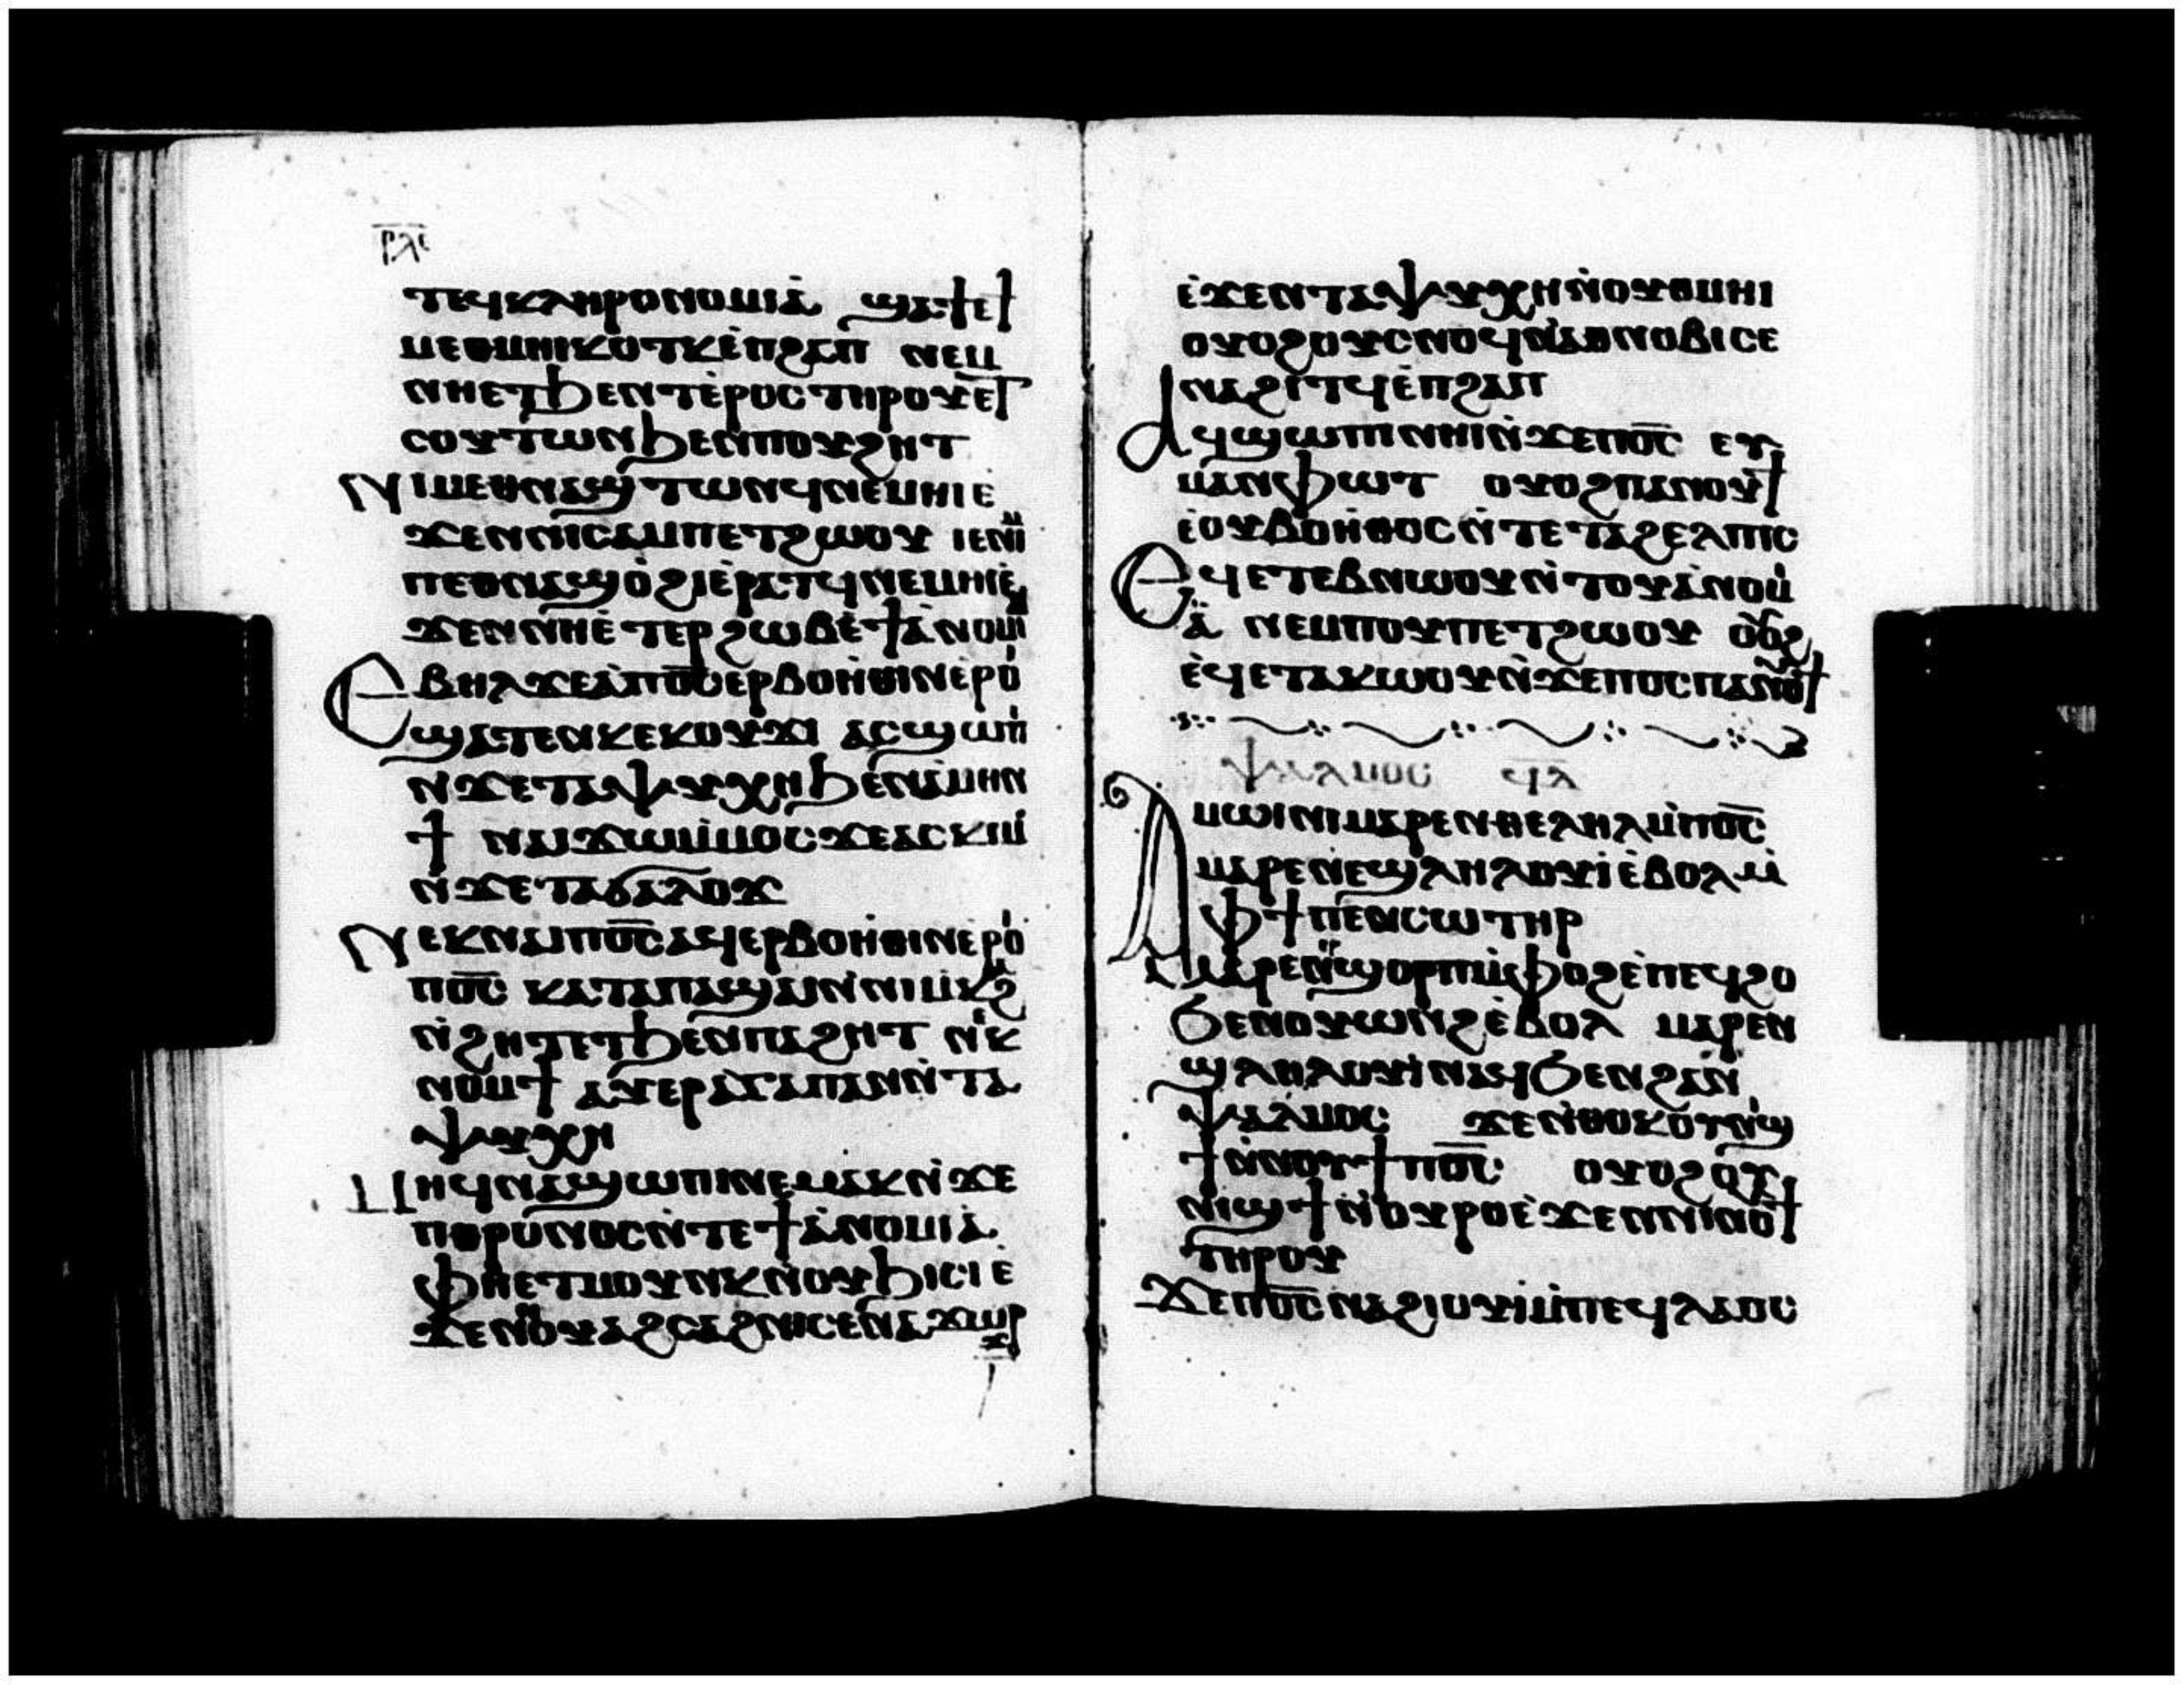 ⲣⲗⲋ
ⲧⲉϥⲕⲗⲏⲣⲟⲛⲟⲙⲓⲁ̀ ϣⲁⲧⲉϯ
ⲙⲉⲑⲙⲏⲓⲕⲟⲧⲕⲉ̀ⲡϩⲁⲡ ⲛⲉⲙ
ⲛⲏⲉⲧϧⲉⲛⲧⲉ̀ⲣⲟⲥⲧⲏⲣⲟⲩⲉⲧ
ⲥⲟⲩⲧⲱⲛϧⲉⲛⲡⲟⲩϩⲏⲧ
ⲛⲓⲙⲉⲑⲛⲁϣⲧⲱⲛϥⲛⲉⲙⲏⲓⲉ
ϫⲉⲛⲛⲓⲥⲁⲙⲡⲉⲧϩⲱⲟⲩ ⲓⲉⲛⲓⲙ
ⲡⲉⲑⲛⲁϣⲟ̀ϩⲓⲉ̀ⲣⲁⲧϥⲛⲉⲙⲏⲓⲉ̀
ϫⲉⲛⲛⲏⲉ̀ⲧⲉⲣϩⲱⲃⲉ̀ϯⲁ̀ⲛⲟⲙⲓⲁ
ⲉⲃⲏⲗϫⲉⲁ̀ⲡⲟ̅ⲥ̅ⲉⲣⲃⲟⲏ̀ⲑⲓⲛⲉ̀ⲣⲟⲓ
ϣⲁⲧⲉⲛⲕⲉⲕⲟⲩϫⲓ ⲁⲥϣⲱⲡⲓ
ⲛϫⲉⲧⲁⲯⲩⲭⲏϧⲉⲛⲁ̀ⲙⲏⲛ
ϯ ⲛⲁⲓϫⲱⲙ̀ⲙⲟⲥϫⲉⲁⲥⲕⲓⲙ
ⲛ̀ϫⲉⲧⲁϭⲁⲗⲟϫ
ⲡⲉⲕⲛⲁⲓⲡⲟ̅ⲥ̅ⲁϥⲉⲣⲃⲟⲏ̀ⲑⲓⲛⲉⲣⲟ̀
ⲡⲟ̅ⲥ̅ ⲕⲁⲧⲁⲡⲁϣⲁⲓⲛ̀ⲛⲓⲙⲕϩ
ⲛ̀ϩⲏⲧⲉⲧϧⲉⲛⲡⲁϩⲏⲧ ⲛ̀ⲕ
ⲛⲟⲙϯ ⲁⲩⲉⲣⲁ̀ⲅⲁⲡⲁⲛⲛ̀ⲧⲁ
ⲯⲩⲭⲏ
ⲙⲏϥⲛⲁϣⲱⲡⲓⲛⲉⲙⲁⲕⲛ̀ϫⲉ
ⲡⲑⲣⲟⲛⲟⲥⲛ̀ⲧⲉϯⲁ̀ⲛⲟⲙⲓⲁ̀
ⲫⲏⲉⲧⲙⲟⲩⲛⲕⲛ̀ⲟⲩϧⲓⲥⲓⲉ̀
ϫⲉⲛⲟⲩⲁϩⲥⲁϩⲛⲓⲥⲉⲛⲁϫⲱⲣϫ
ⲉ̀ϫⲉⲛⲧⲁⲯⲩⲭⲏⲛ̀ⲟⲩⲑⲙⲏⲓ
ⲟⲩⲟϩⲟⲩⲥⲛⲟϥⲛⲁ̀ⲑⲛⲟⲃⲓⲥⲉ
ⲛⲁϩⲓⲧϥⲉ̀ⲡϩⲁⲡ
ⲁϥϣⲱⲡⲓⲛⲏⲓⲛ̀ϫⲉⲡⲟ̅ⲥ̅ ⲉⲩ
ⲙⲁⲛⲫⲱⲧ ⲟⲩⲟϩⲡⲁⲛⲟⲩϯ
ⲉ̀ⲟⲩⲃⲟⲏ̀ⲑⲟⲥⲛ̀ⲧⲉⲧⲁϩⲉⲗⲡⲓⲥ
ⲉϥⲉⲧⲉⲃⲛⲱⲟⲩⲛ̀ⲧⲟⲩⲁ̀ⲛⲟⲙⲓ
ⲁ̀ ⲛⲉⲙⲡⲟⲩⲡⲉⲧϩⲱⲟⲩ ⲟⲩⲟϩ
ⲉ̀ϥⲉⲧⲁⲕⲱⲟⲩⲛ̀ϫⲉⲡⲟⲥⲡⲁⲛⲟⲩϯ
ⲯⲁⲗⲙⲟⲥ ϥ̅ⲇ̅
ⲁⲙⲱⲓⲛⲓⲙⲁⲣⲉⲛⲑⲉⲗⲏⲗⲙ̀ⲡⲟ̅ⲥ̅
ⲙⲁⲣⲉⲛⲉϣⲗⲏⲗⲟⲩⲓ̀ⲉ̀ⲃⲟⲗⲙ̀
ⲫϯⲡⲉⲛⲥⲱⲧⲏⲣ
ⲙⲁⲣⲉⲛⲉⲣϣⲟⲣⲡⲙ̀ⲫⲟϩⲉ̀ⲡⲉϥϩⲟ
ϧⲉⲛⲟⲩⲱⲛϩⲉ̀ⲃⲟⲗ ⲙⲁⲣⲉⲛ
ϣⲗⲏⲗⲟⲩⲓ̀ⲛⲁϥϧⲉⲛϩⲁⲛ
ⲯⲁⲗⲙⲟⲥ ϫⲉⲛ̀ⲑⲟⲕⲟⲩⲛⲓϣ
ϯⲛ̀ⲛⲟⲩϯⲡⲟ̅ⲥ̅ ⲟⲩⲟϩⲟⲩ
ⲛⲓϣϯⲛ̀ⲟⲩⲣⲟⲉ̀ϫⲉⲛⲛⲓⲛⲟⲩϯ
ⲧⲏⲣⲟⲩ
ϫⲉⲡⲟ̅ⲥ̅ⲛⲁϩⲓⲟⲩⲓ̀ⲙ̀ⲡⲉϥⲗⲁⲟⲥ